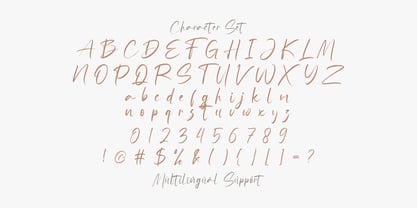 Character Set
A B C D E F G H I J K L M
N O P Q R S T U V W X Y Z
a b c d e f g h i j k l m
n o p q r s t u v w x y z
0 1 2 3 4 5 6 7 8 9
! @ # $ % & ( ) { } [ ] = ?
Multilingual Support